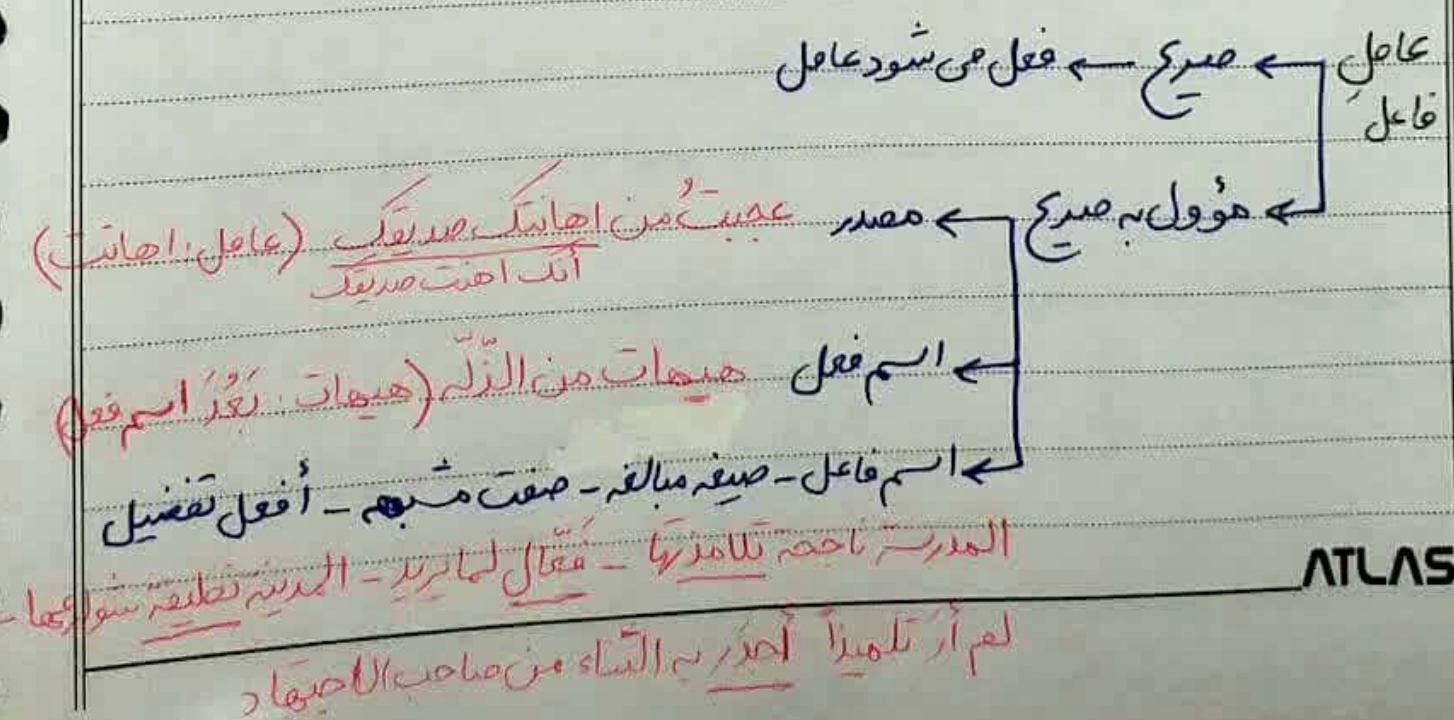 عاملِ ← صریح ← فعل می شود عامل
فاعل
← مؤول به صریح ← مصدر عجبتُ من اهانتک صدیقک (عامل: اهانت)
أنک اهنت صدیقک
← اسم فعل هیهات من الذّلّه (هیهات: بَعُدَ اسم فعل)
← اسم فاعل - صیغه مبالغه - صفت مشبهه - أفعل تفضیل
المدرسة ناجحة تلامذتها - فَعّال لما یرید - المدینه نظیفة شوارعها -
ATLAS
لم أرَ تلمیذاً أجدَر به الثّناء من صاحب الاجتهاد